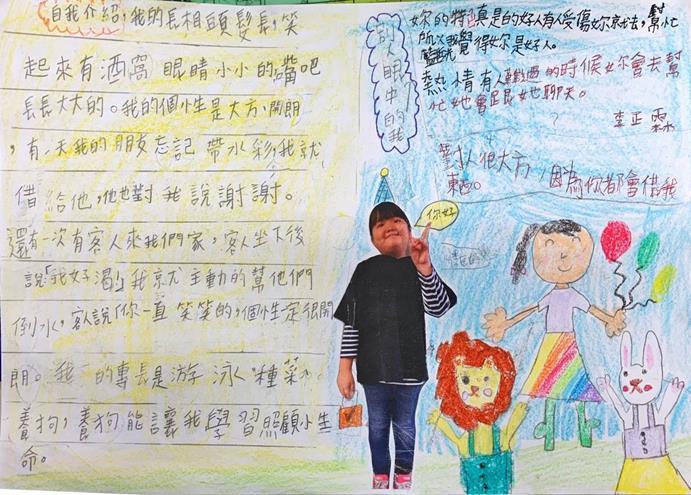 自我介紹，我的長相頭髮長，笑
起來有酒窩眼睛小小的嘴吧
長長大大的。我的個性是大方、開朗
，有一天我的朋友忘記帶水彩，我就
借給他，他也對我說謝謝。
還有一次有客人來我們家，客人坐下後
說「我好渴」我就主動的幫他們
倒水，客說「你一直笑笑的，個性定很開
朗。我的專長是游泳、種菜、
養狗，養狗能讓我學習照顧小生
命。
別人眼中的我
妳的特真是的好人有人受傷妳就去幫忙
所以我覺得妳是好人。
熱情有人難過的時候妳會去幫
忙她會足跟她聊天。
李正霖
對人很大方，因為你都會借我
東西。
你好